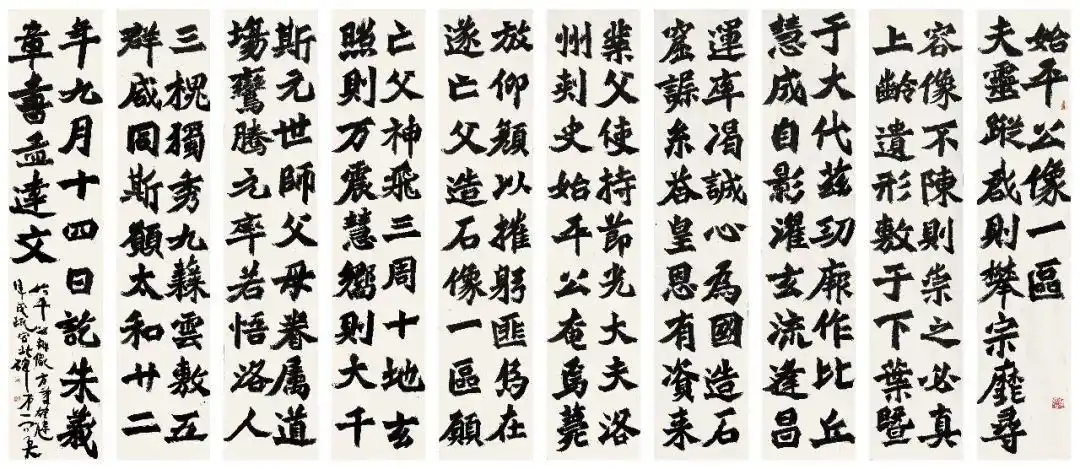 始平公像一區
夫靈蹤啟則攀宗靡尋
容像不陳則崇之必真
上齡遺形敷于下葉暨
于大代茲功廓作比丘
慧成自影濯玄流逢昌
運率渴誠心為國造石
窟糸答皇恩有資来
父使持節光大夫洛
州刾史始平公奄焉薨
放仰顏以摧躬匪烏在
遂亡父造石像一區願
亡父神飛三周十地玄
照則万震慧嚮則大千
斯元世師父母眷属道
場鸞騰元率若悟洛人
三槐獨秀九蕀雲敷五
群咸同斯願太和廿二
年九月十四日訖朱義
章書孟達文